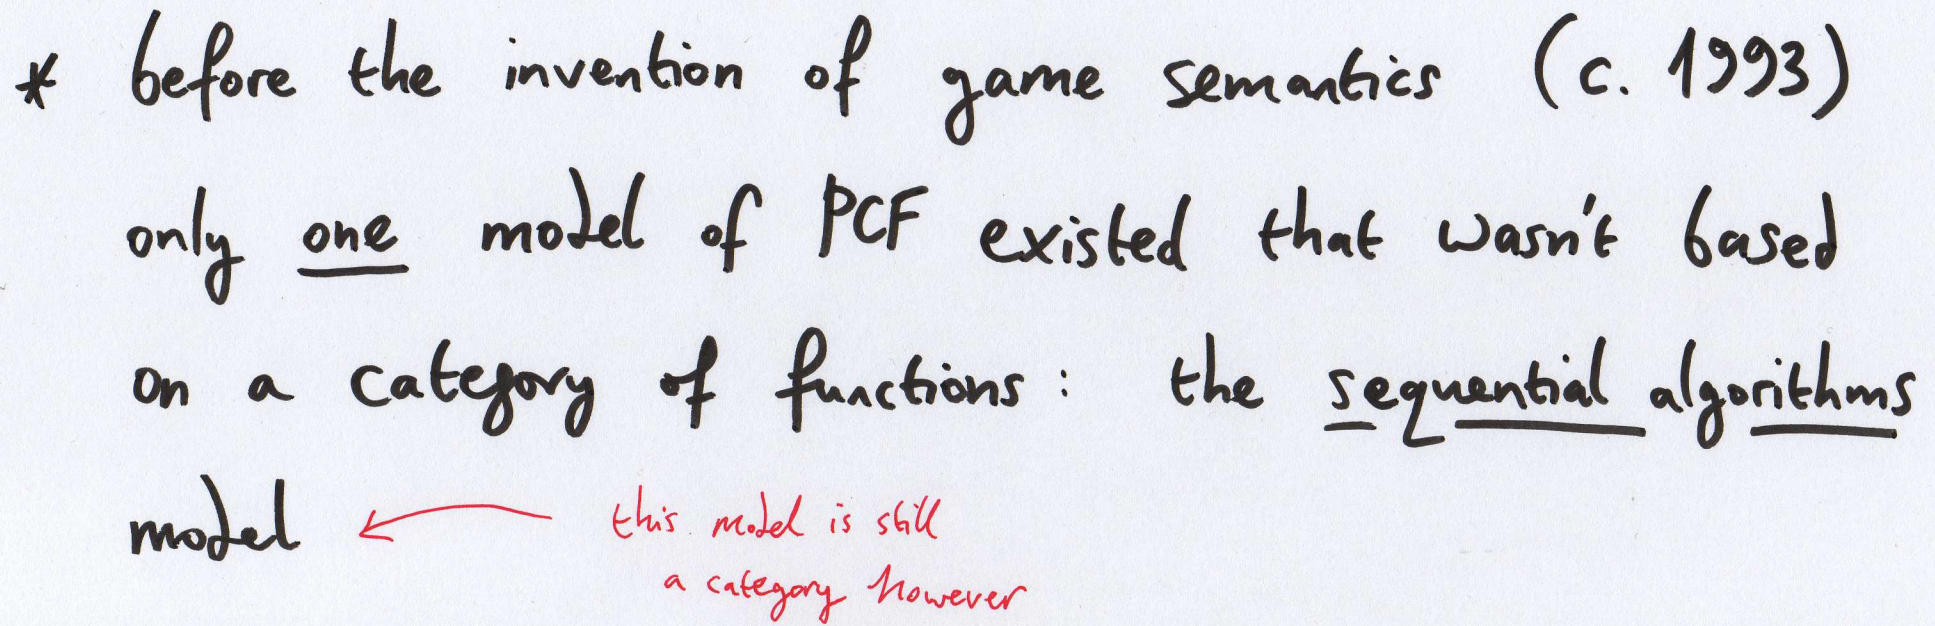 * before the invention of game semantics (c. 1993)
only one model of PCF existed that wasn't based
on a category of functions: the sequential algorithms
model
this model is still
a category however